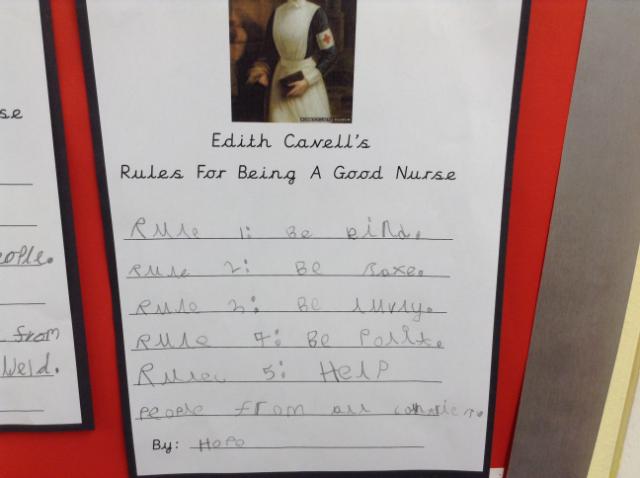 se
Edith Cavell's
Rules For Being A Good Nurse
Rule 1: Be kind.
eople.
Rule 2: Be
Rule 3: Be
from
Rule 4: Be Polite.
Weld.
Rule 5: Help
People from all
By: Hope